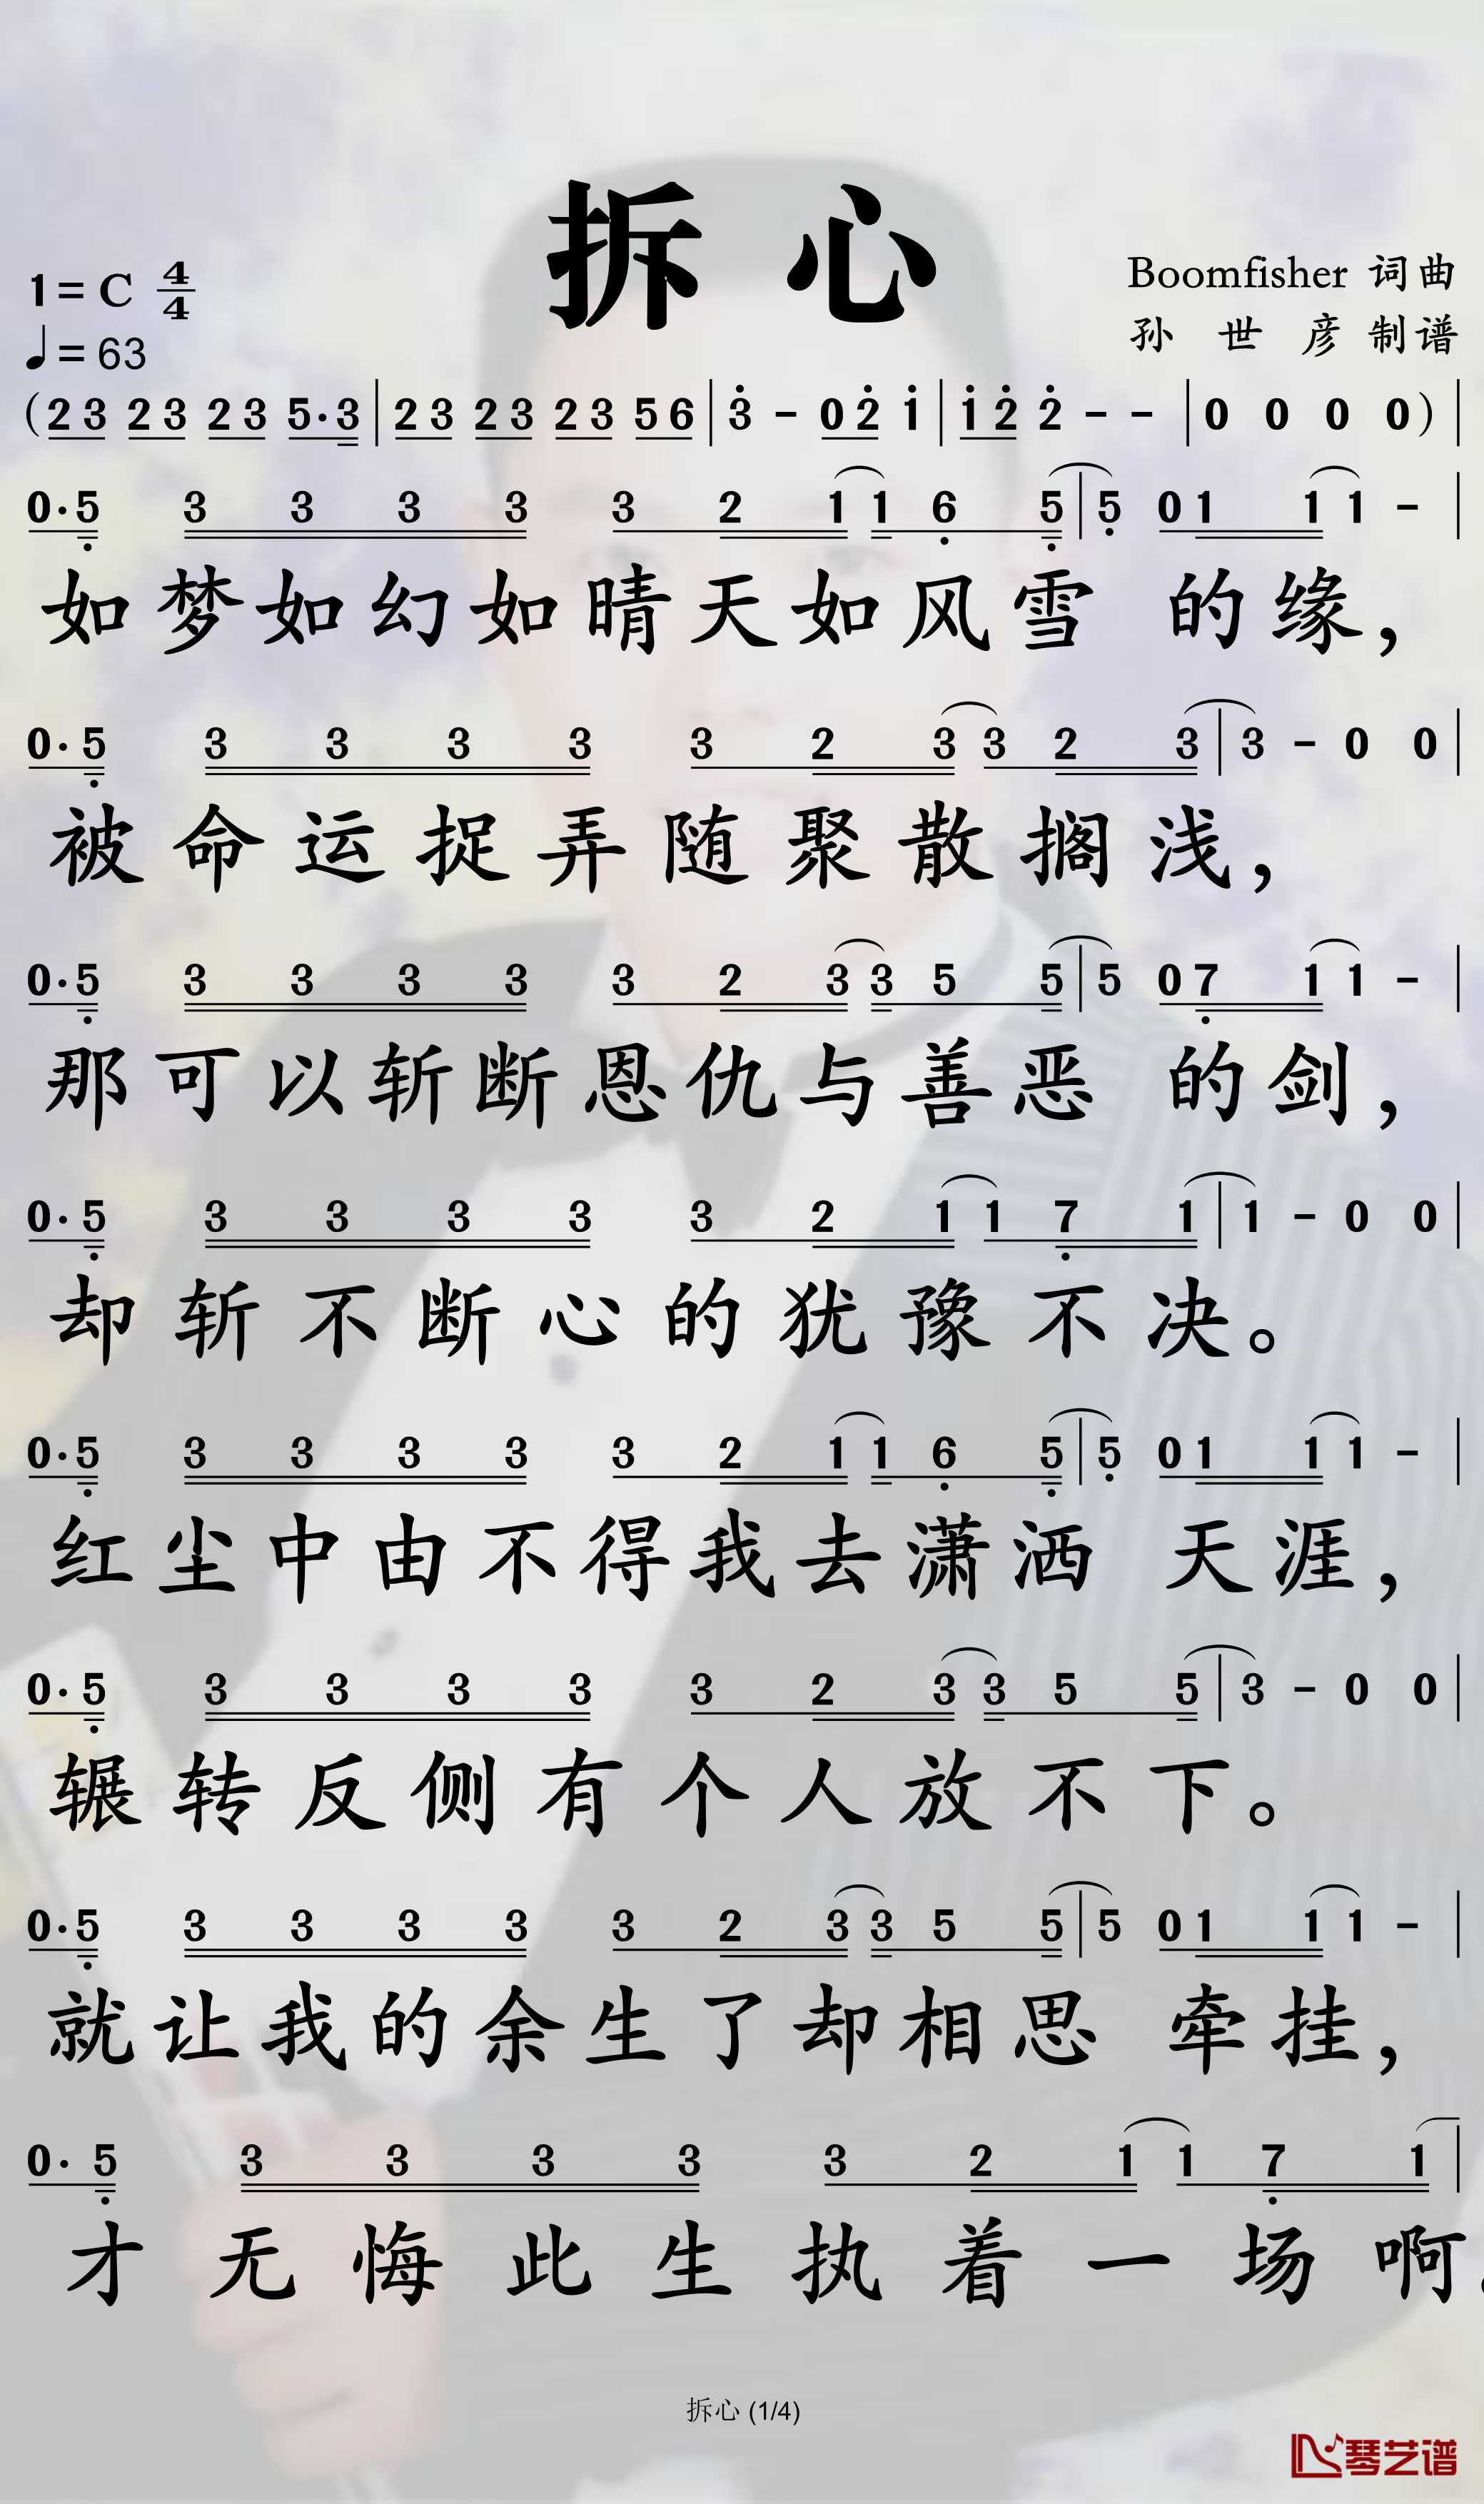 拆心
1=C 4/4
Boomfisher 词曲
♩=63
孙世彦 制谱
(2 3 2 3 2 3 5·3 | 2 3 2 3 2 3 5 6 | 3̇ - 0 2̇ 1̇ | 1̇ 2̇ 2̇ - - | 0 0 0 0) |
0·5̣ 3 3 3 3 3 2 1 1 6̣ 5̣ | 5̣ 0 1 1 1 - |
如梦如幻如晴天如风雪 的缘，
0·5̣ 3 3 3 3 3 2 3 3 2 3 | 3 - 0 0 |
被命运捉弄随聚散搁浅，
0·5̣ 3 3 3 3 3 2 3 3 5 5 | 5 0 7̣ 1 1 - |
那可以斩断恩仇与善恶 的剑，
0·5̣ 3 3 3 3 3 2 1 1 7̣ 1 | 1 - 0 0 |
却斩不断心的犹豫不决。
0·5̣ 3 3 3 3 3 2 1 1 6̣ 5̣ | 5̣ 0 1 1 1 - |
红尘中由不得我去潇洒 天涯，
0·5̣ 3 3 3 3 3 2 3 3 5 5 | 3 - 0 0 |
辗转反侧有个人放不下。
0·5̣ 3 3 3 3 3 2 3 3 5 5 | 5 0 1 1 1 - |
就让我的余生了却相思 牵挂，
0·5̣ 3 3 3 3 3 2 1 1 7̣ 1 |
才无悔此生执着一场啊。
拆心 (1/4)
琴艺谱